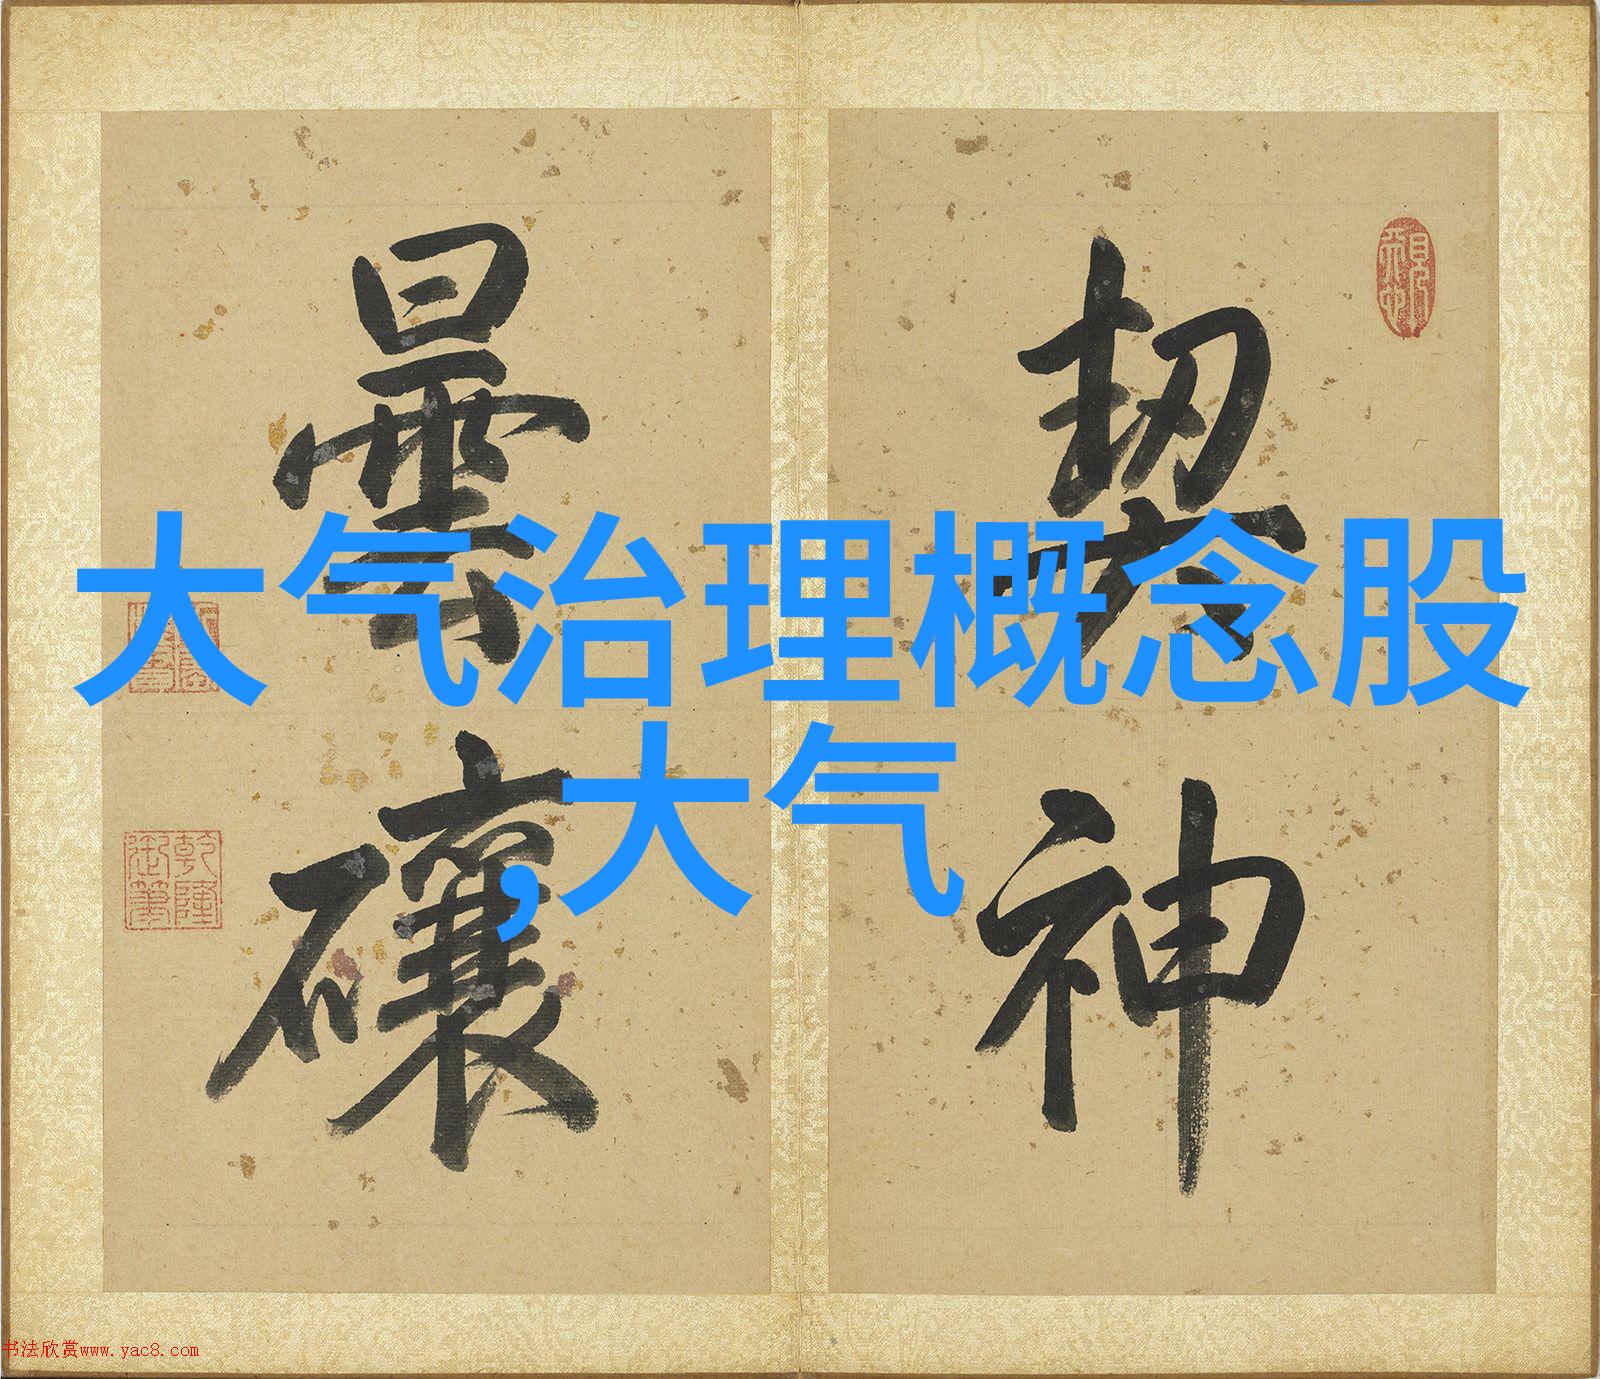 大气治理概念股
,大气
契神
曇礦
乾隆
御筆
书法欣赏www.yac8.com